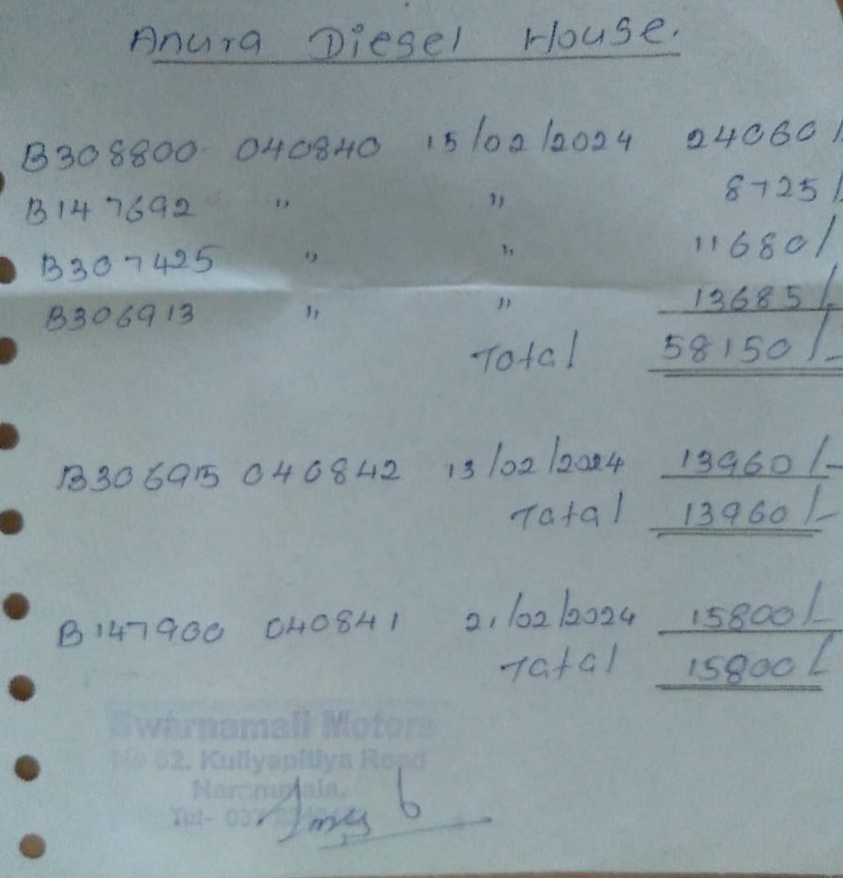 Anura Diesel House.
B308800 040840 15/02/2024 24060/
B147692 " " 8725/
B307425 " " 11680/
B306913 " " 13685/-
Total 58150/-
B306915 040842 13/02/2024 13960/-
Total 13960/-
B147900 040841 21/02/2024 15800/-
Total 15800/-
Swarnamali Motors
No 82. Kuliyapitiya Road
Tel- 037